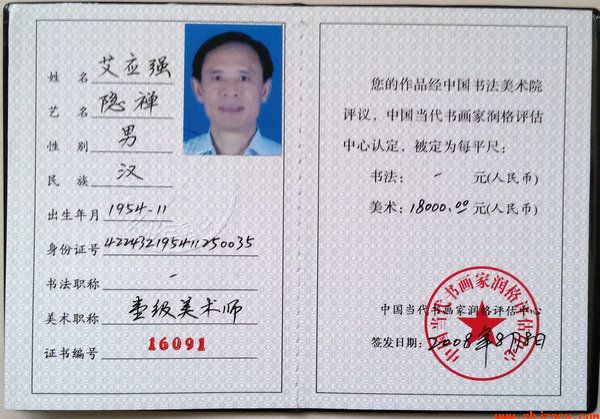 姓 名 艾应强
艺 名 隐禅
性 别 男
民 族 汉
出生年月 1954-11
身份证号 422432195411250035
书法职称 —
美术职称 壹级美术师
证书编号 16091
您的作品经中国书法美术院
评议，中国当代书画家润格评估
中心认定，被定为每平尺：
书法： — 元(人民币)
美术：18000.00 元(人民币)
中国当代书画家润格评估中心
中国当代书画家润格评估中心
签发日期：2008年8月8日